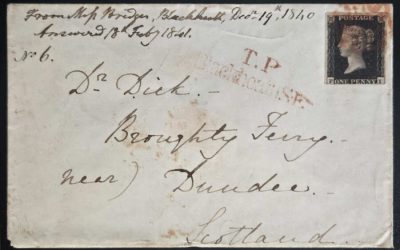 From Miss Bridges, Blackheath, Decr. 19th 1840
Answered 18th Feby 1841.
No 6.
T.P
Blackheath S.E.
POSTAGE
ONE PENNY
Dr Dick.
Broughty Ferry.
near) Dundee.
Scotland